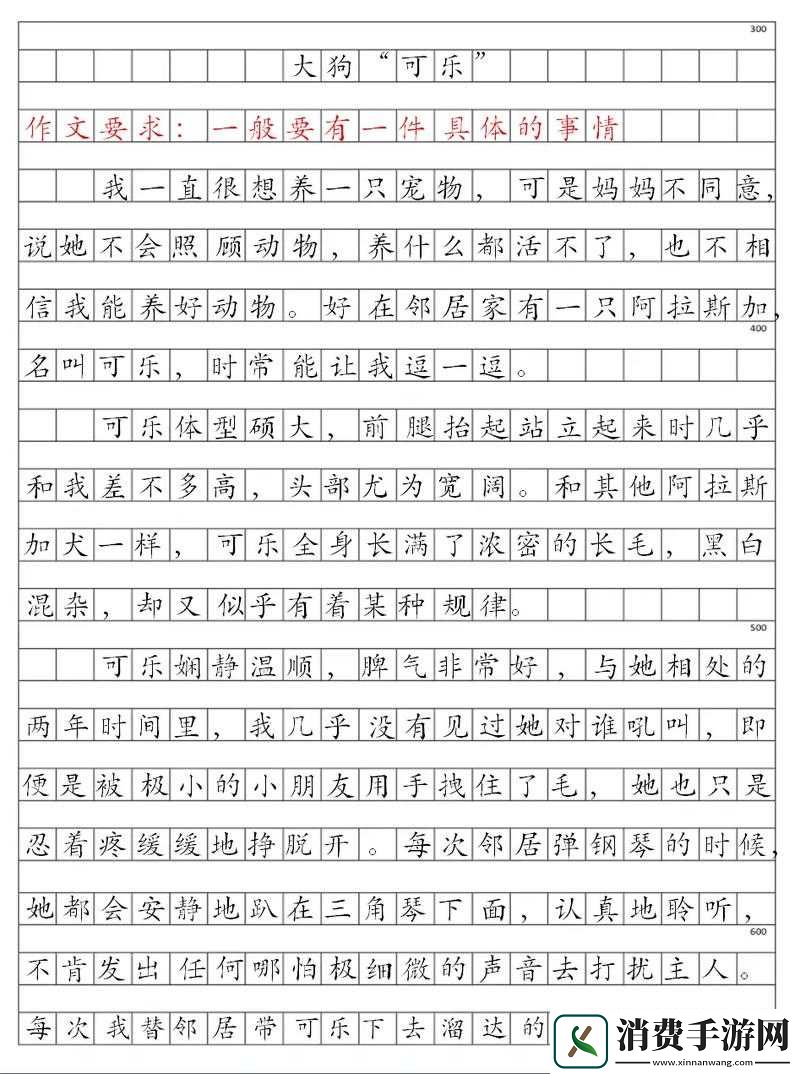 300
大狗“可乐”
作文要求：一般要有一件具体的事情
我一直很想养一只宠物，可是妈妈不同意，
说她不会照顾动物，养什么都活不了，也不相
信我能养好动物。好在邻居家有一只阿拉斯加，
400
名叫可乐，时常能让我逗一逗。
可乐体型硕大，前腿抬起站立起来时几乎
和我差不多高，头部尤为宽阔。和其他阿拉斯
加犬一样，可乐全身长满了浓密的长毛，黑白
混杂，却又似乎有着某种规律。
500
可乐娴静温顺，脾气非常好，与她相处的
两年时间里，我几乎没有见过她对谁吼叫，即
便是被极小的小朋友用手拽住了毛，她也只是
忍着疼缓缓地挣脱开。每次邻居弹钢琴的时候，
她都会安静地趴在三角琴下面，认真地聆听，
600
不肯发出任何哪怕极细微的声音去打扰主人。
每次我替邻居带可乐下去溜达的
消费手游网
www.xinnanwang.com